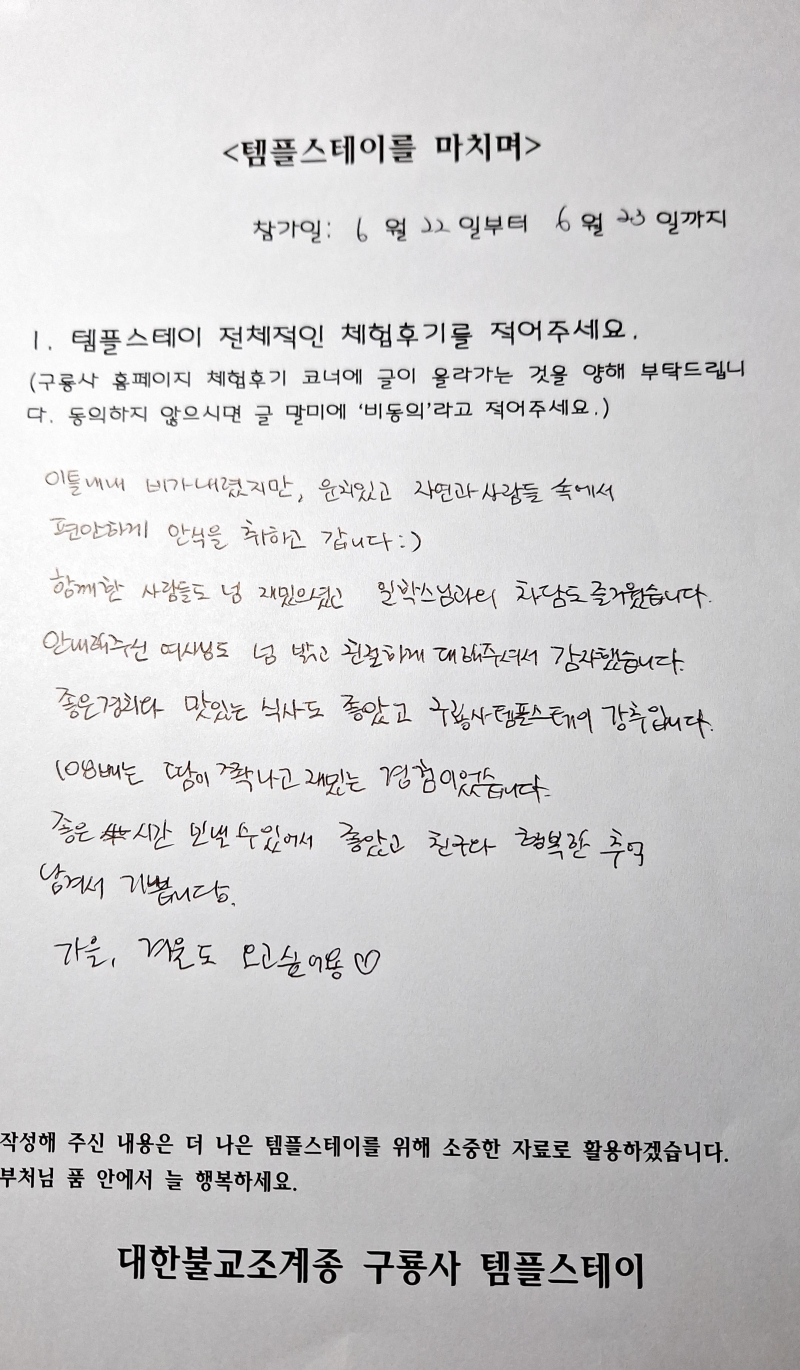 <템플스테이를 마치며>
참가일: 6 월 22 일부터 6 월 23 일까지
1. 템플스테이 전체적인 체험후기를 적어주세요.
(구룡사 홈페이지 체험후기 코너에 글이 올라가는 것을 양해 부탁드립니
다. 동의하지 않으시면 글 말미에 '비동의'라고 적어주세요.)
이틀내내 비가내렸지만, 운치있고 자연과 사람들 속에서
편안하게 안식을 취하고 갑니다:)
함께한 사람들도 넘 재밌으셨고 원박스님과의 차담도 즐거웠습니다.
안내해주신 여사님도 넘 밝고 친절하게 대해주셔서 감사했습니다.
좋은경치와 맛있는 식사도 좋았고 구룡사템플스테이 강추입니다.
108배는 땀이 쫙나고 재밌는 경험이었습니다.
좋은 시간 보낼 수 있어서 좋았고 친구와 행복한 추억
남겨서 기쁩니다.
가을, 겨울도 오고싶어용♡
작성해 주신 내용은 더 나은 템플스테이를 위해 소중한 자료로 활용하겠습니다.
부처님 품 안에서 늘 행복하세요.
대한불교조계종 구룡사 템플스테이